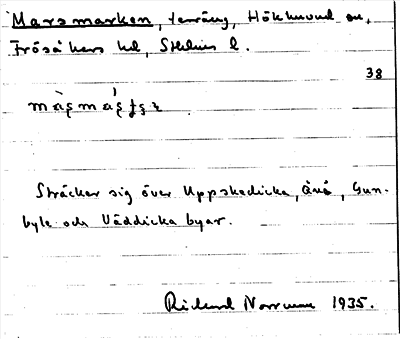 Marsmarken, terräng, Hökhuvud sn,
Frösåkers hd, Sthlms l.
38
Sträcker sig över Uppskedicka, Ånå, Gun-
byle och Väddicka byar.
Rickard Norrman 1935.